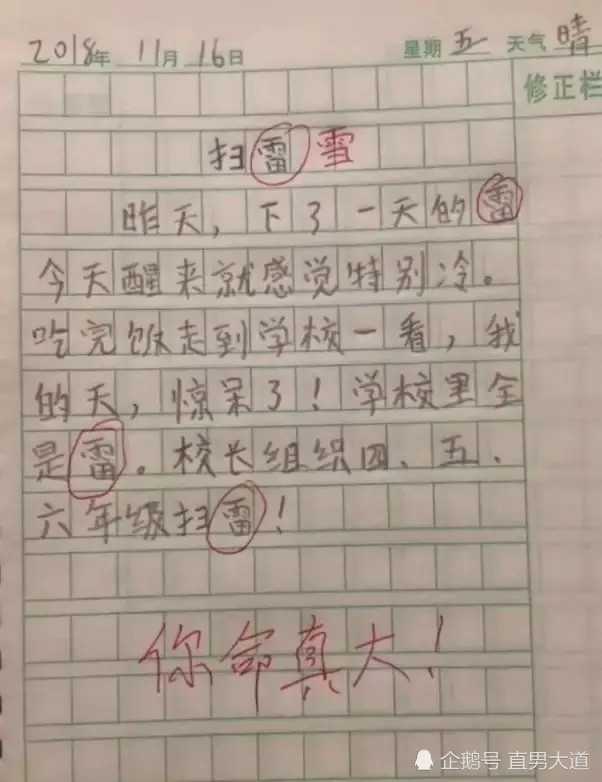 2018年 11月 16日 星期 五 天气 晴
修正栏
扫雷 雪
昨天，下了一天的雷
今天醒来就感觉特别冷。
吃完饭走到学校一看，我
的天，惊呆了！学校里全
是雷。校长组织四、五、
六年级扫雷！
你命真大！
企鹅号 直男大道